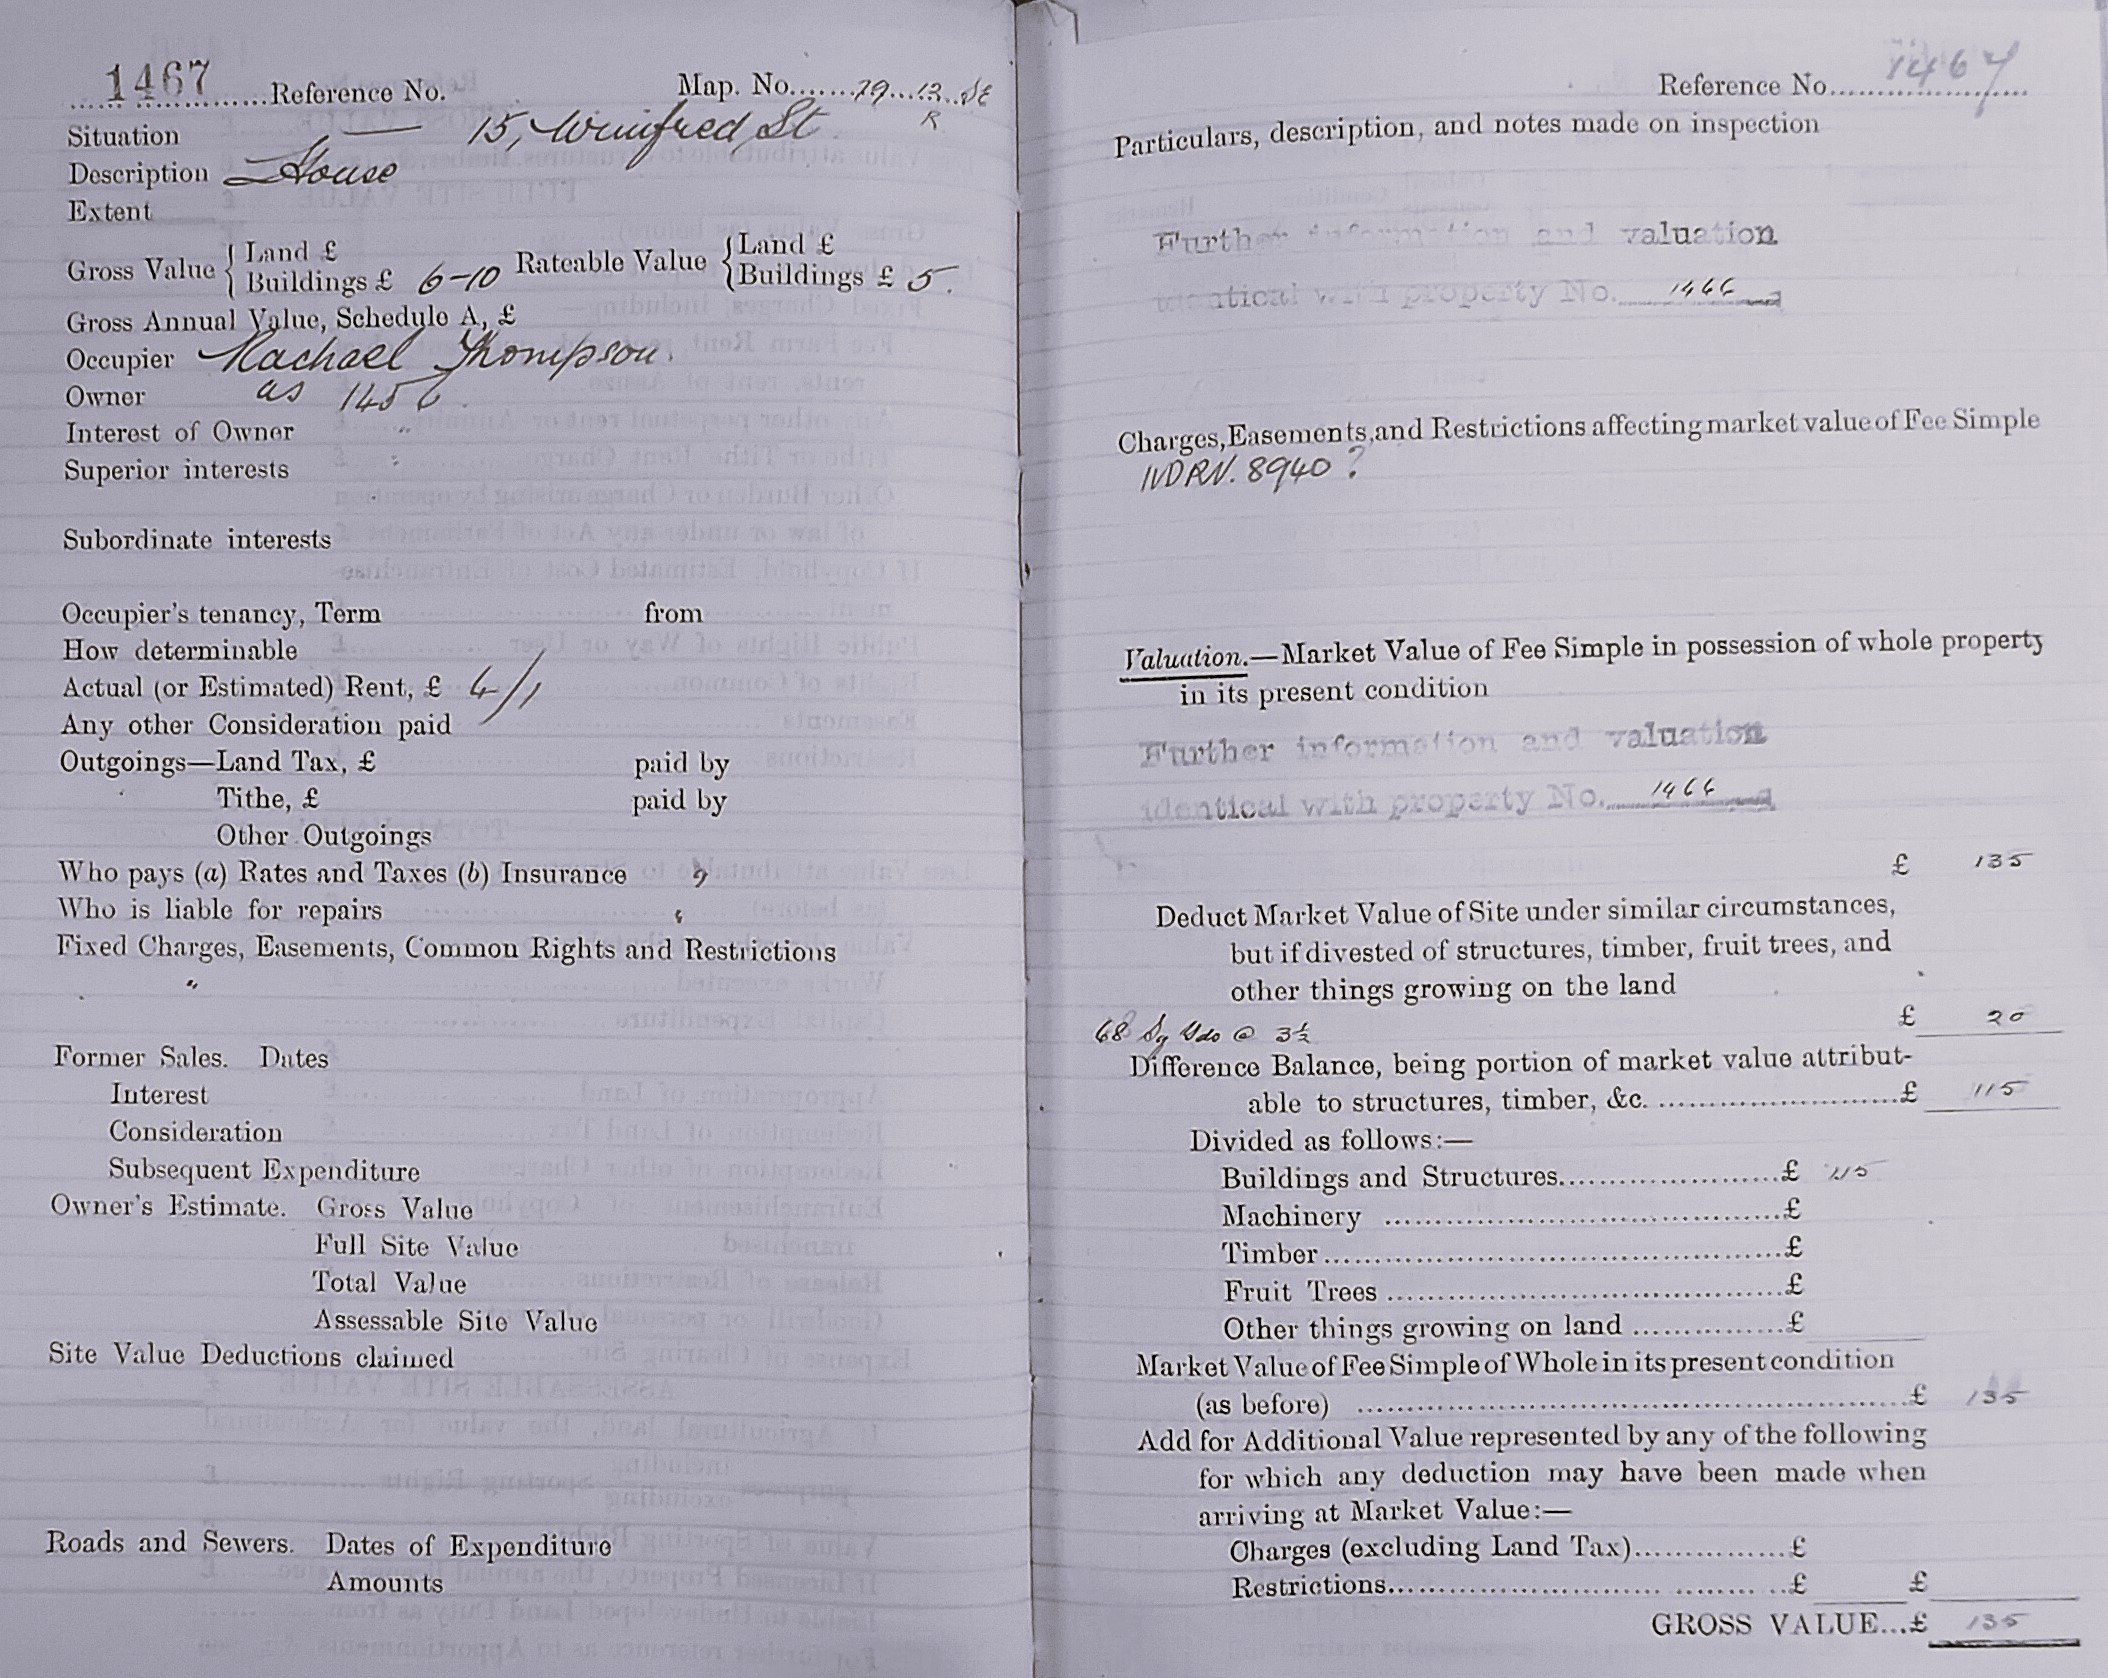 1467 Reference No. Map. No. 79 . 13 . SE
R
Situation 15, Winifred St
Description House
Extent
Gross Value { Land £ Rateable Value { Land £
Buildings £ 6-10 Buildings £ 5.
Gross Annual Value, Schedule A, £
Occupier Rachael Thompson.
Owner as 1456.
Interest of Owner "
Superior interests
Subordinate interests
Occupier's tenancy, Term from
How determinable
Actual (or Estimated) Rent, £ 4/1
Any other Consideration paid
Outgoings—Land Tax, £ paid by
Tithe, £ paid by
Other Outgoings
Who pays (a) Rates and Taxes (b) Insurance
Who is liable for repairs
Fixed Charges, Easements, Common Rights and Restrictions
"
Former Sales. Dates
Interest
Consideration
Subsequent Expenditure
Owner's Estimate. Gross Value
Full Site Value
Total Value
Assessable Site Value
Site Value Deductions claimed
Roads and Sewers. Dates of Expenditure
Amounts
Reference No. 1467
Particulars, description, and notes made on inspection
Further information and valuation
identical with property No. 1466
Charges, Easements, and Restrictions affecting market value of Fee Simple
8940 ?
Valuation.—Market Value of Fee Simple in possession of whole property
in its present condition
Further information and valuation
identical with property No. 1466
£ 135
Deduct Market Value of Site under similar circumstances,
but if divested of structures, timber, fruit trees, and
other things growing on the land
£ 20
68 Sq Yds @ 3½
Difference Balance, being portion of market value attribut-
able to structures, timber, &c. £ 115
Divided as follows:—
Buildings and Structures £ 115
Machinery £
Timber £
Fruit Trees £
Other things growing on land £
Market Value of Fee Simple of Whole in its present condition
(as before) £ 135
Add for Additional Value represented by any of the following
for which any deduction may have been made when
arriving at Market Value:—
Charges (excluding Land Tax) £
Restrictions £ £
GROSS VALUE...£ 135